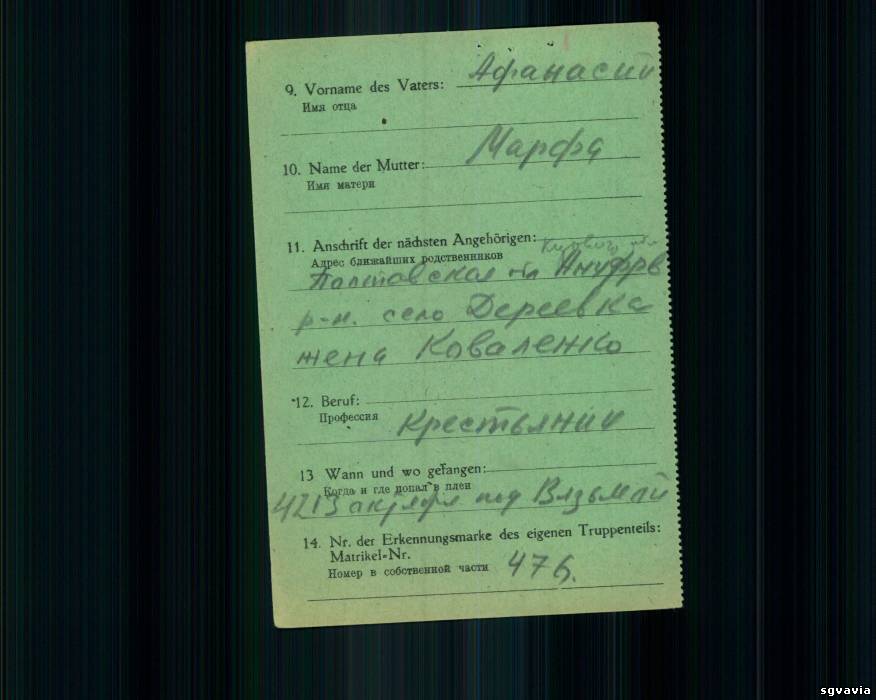 9. Vorname des Vaters: Афанасии
Имя отца
10. Name der Mutter: Марфа
Имя матери
11. Anschrift der nächsten Angehörigen:
Адрес ближайших родственников
Полтовская
р-н. село Дереевка
жена Коваленко
12. Beruf:
Профессия Крестьянин
13 Wann und wo gefangen:
Когда и где попал в плен
под Вязьмай
14. Nr. der Erkennungsmarke des eigenen Truppenteils:
Matrikel-Nr.
Номер в собственной части 476.
sgvavia